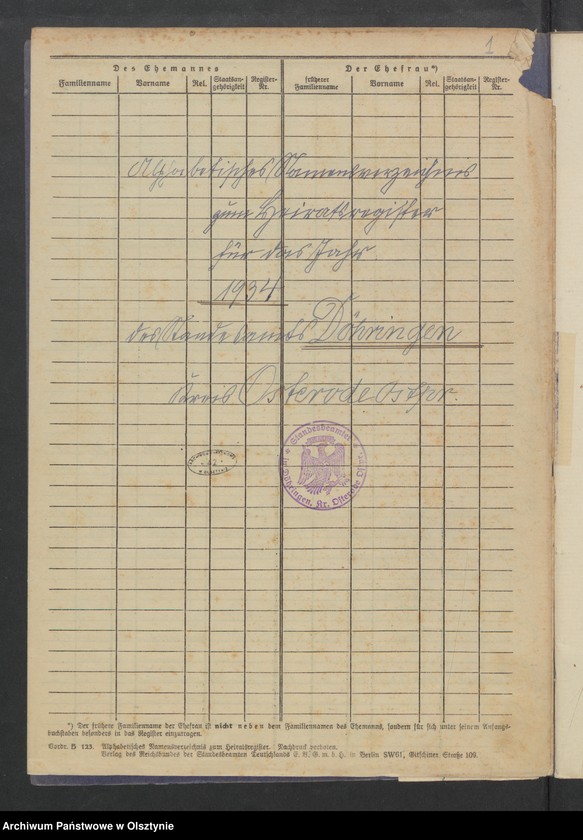 1
Des Ehemannes
Der Ehefrau*)
Familienname
Vorname
Rel.
Staatsan-
gehörigkeit
Register-
Nr.
früherer
Familienname
Vorname
Rel.
Staatsan-
gehörigkeit
Register-
Nr.
Alphabetisches Namensverzeichnis
zum Heiratsregister
für das Jahr
1934
des Standesamts Döhringen
Kreis Osterode Ostpr.
Standesbeamter
in Döhringen, Kr. Osterode Ostpr.
*) Der frühere Familienname der Ehefrau ist nicht neben dem Familiennamen des Ehemanns, sondern für sich unter seinem Anfangs-
buchstaben besonders in das Register einzutragen.
Vordr. D 123. Alphabetisches Namensverzeichnis zum Heiratsregister. Nachdruck verboten.
Verlag des Reichsbundes der Standesbeamten Deutschlands E. V. G. m. b. H. in Berlin SW61, Gitschiner Straße 109.
Archiwum Państwowe w Olsztynie